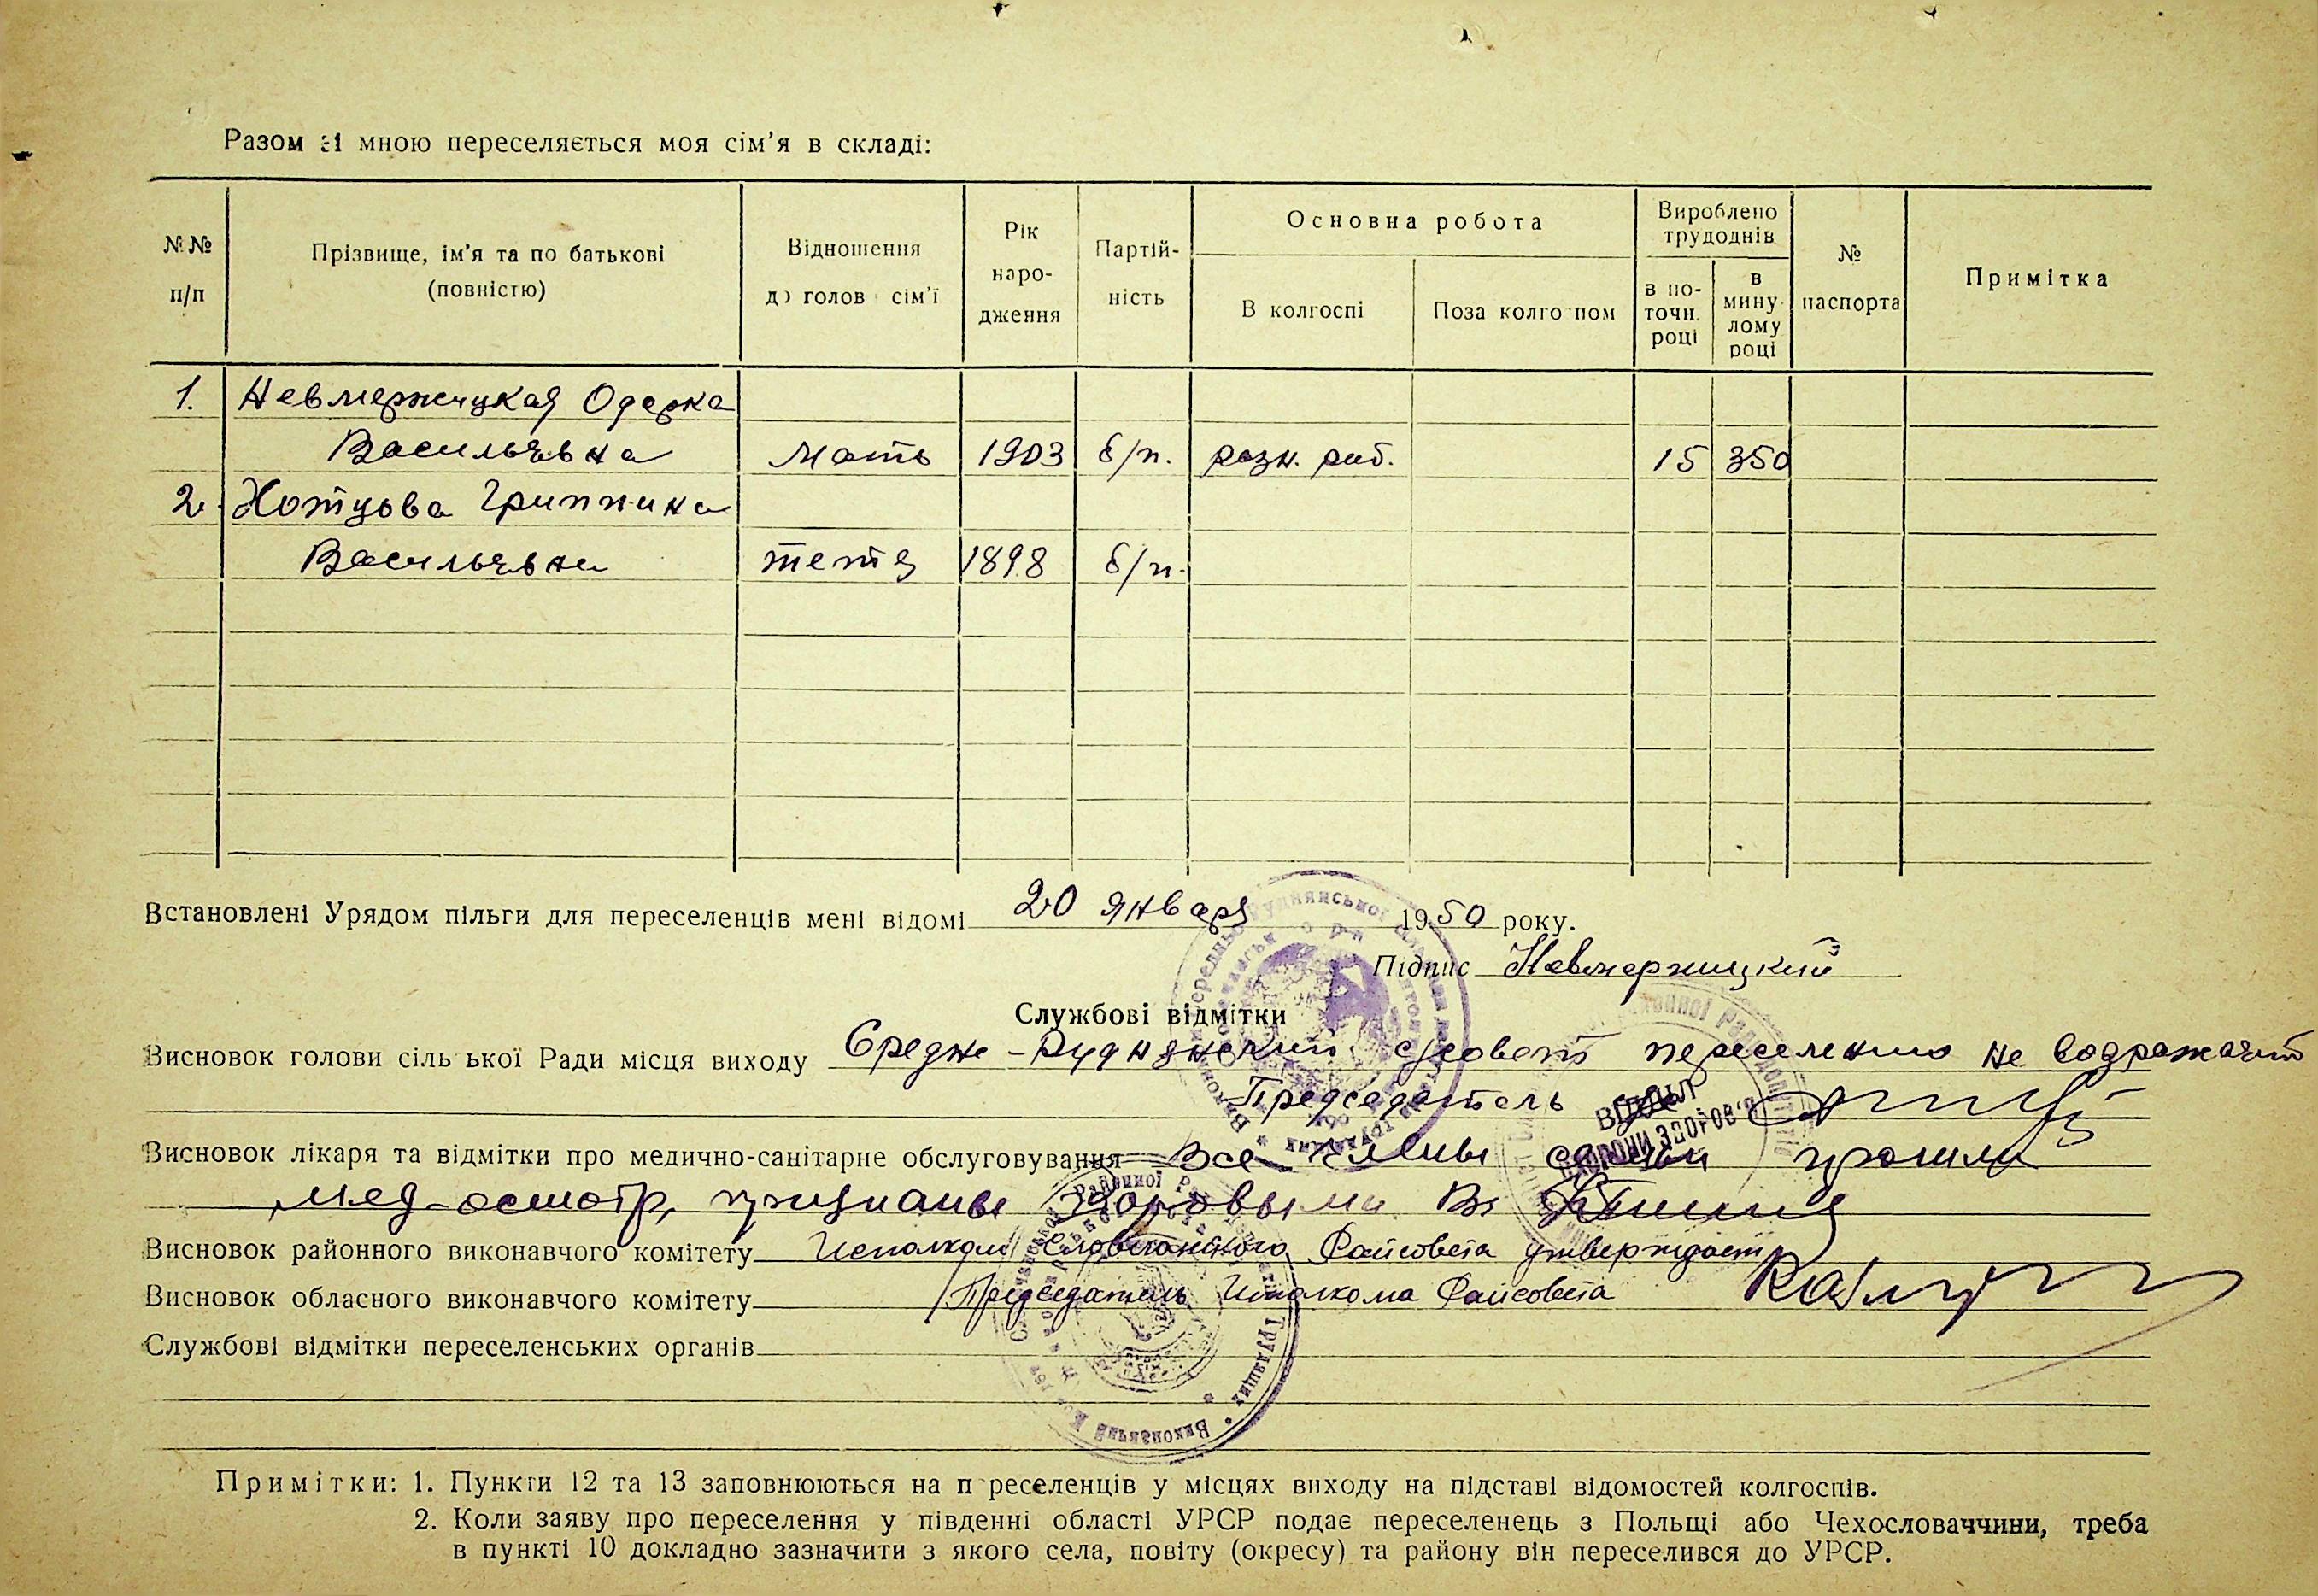 Разом зі мною переселяється моя сім'я в складі:
№№ п/п
Прізвище, ім'я та по батькові (повністю)
Відношення до голови сім'ї
Рік наро-дження
Партій-ність
Основна робота
В колгоспі
Поза колгоспом
Вироблено трудоднів
в по-точн. році
в мину-лому році
№ паспорта
Примітка
1. Невмержицкая Одарка
Васильевна мать 1903 б/п. разн. раб. 15 350
2. Хотцова Гриппина
Васильевна тетя 1898 б/п.
Встановлені Урядом пільги для переселенців мені відомі 20 января 1950 року.
Підпис Невмержицкий
Службові відмітки
Висновок голови сільської Ради місця виходу Средне-Руднянский с/совет переселению не возражает
Председатель
Висновок лікаря та відмітки про медично-санітарне обслуговування Все члены семьи прошли
мед-осмотр, признаны здоровыми. Вр
Висновок районного виконавчого комітету Исполком Словечанского Райсовета утверждает
Висновок обласного виконавчого комітету Председатель Исполкома Райсовета
Службові відмітки переселенських органів
Відділ
охорони здоров'я
Примітки: 1. Пункти 12 та 13 заповнюються на переселенців у місцях виходу на підставі відомостей колгоспів.
2. Коли заяву про переселення у південні області УРСР подає переселенець з Польщі або Чехословаччини, треба
в пункті 10 докладно зазначити з якого села, повіту (окресу) та району він переселився до УРСР.